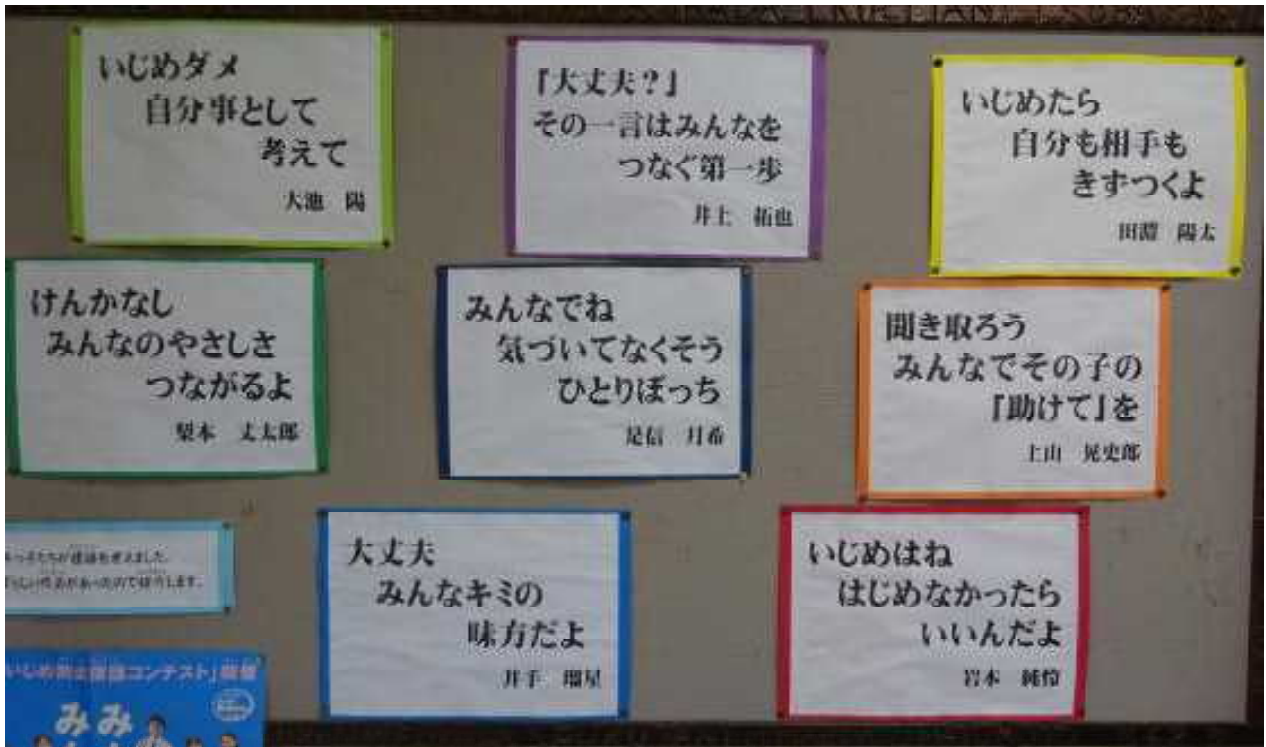 いじめダメ
自分事として
考えて
大池 陽
『大丈夫?』
その一言はみんなを
つなぐ第一歩
井上 拓也
いじめたら
自分も相手も
きずつくよ
田淵 陽太
けんかなし
みんなのやさしさ
つながるよ
梨本 丈太郎
みんなでね
気づいてなくそう
ひとりぼっち
足信 月希
聞き取ろう
みんなでその子の
『助けて』を
上山 晃史郎
大丈夫
みんなキミの
味方だよ
井手 瑠星
いじめはね
はじめなかったら
いいんだよ
岩本 純怜
たちが標語を考えました。
作品があったので紹介します。
いじめ防止標語コンテスト」
みみ